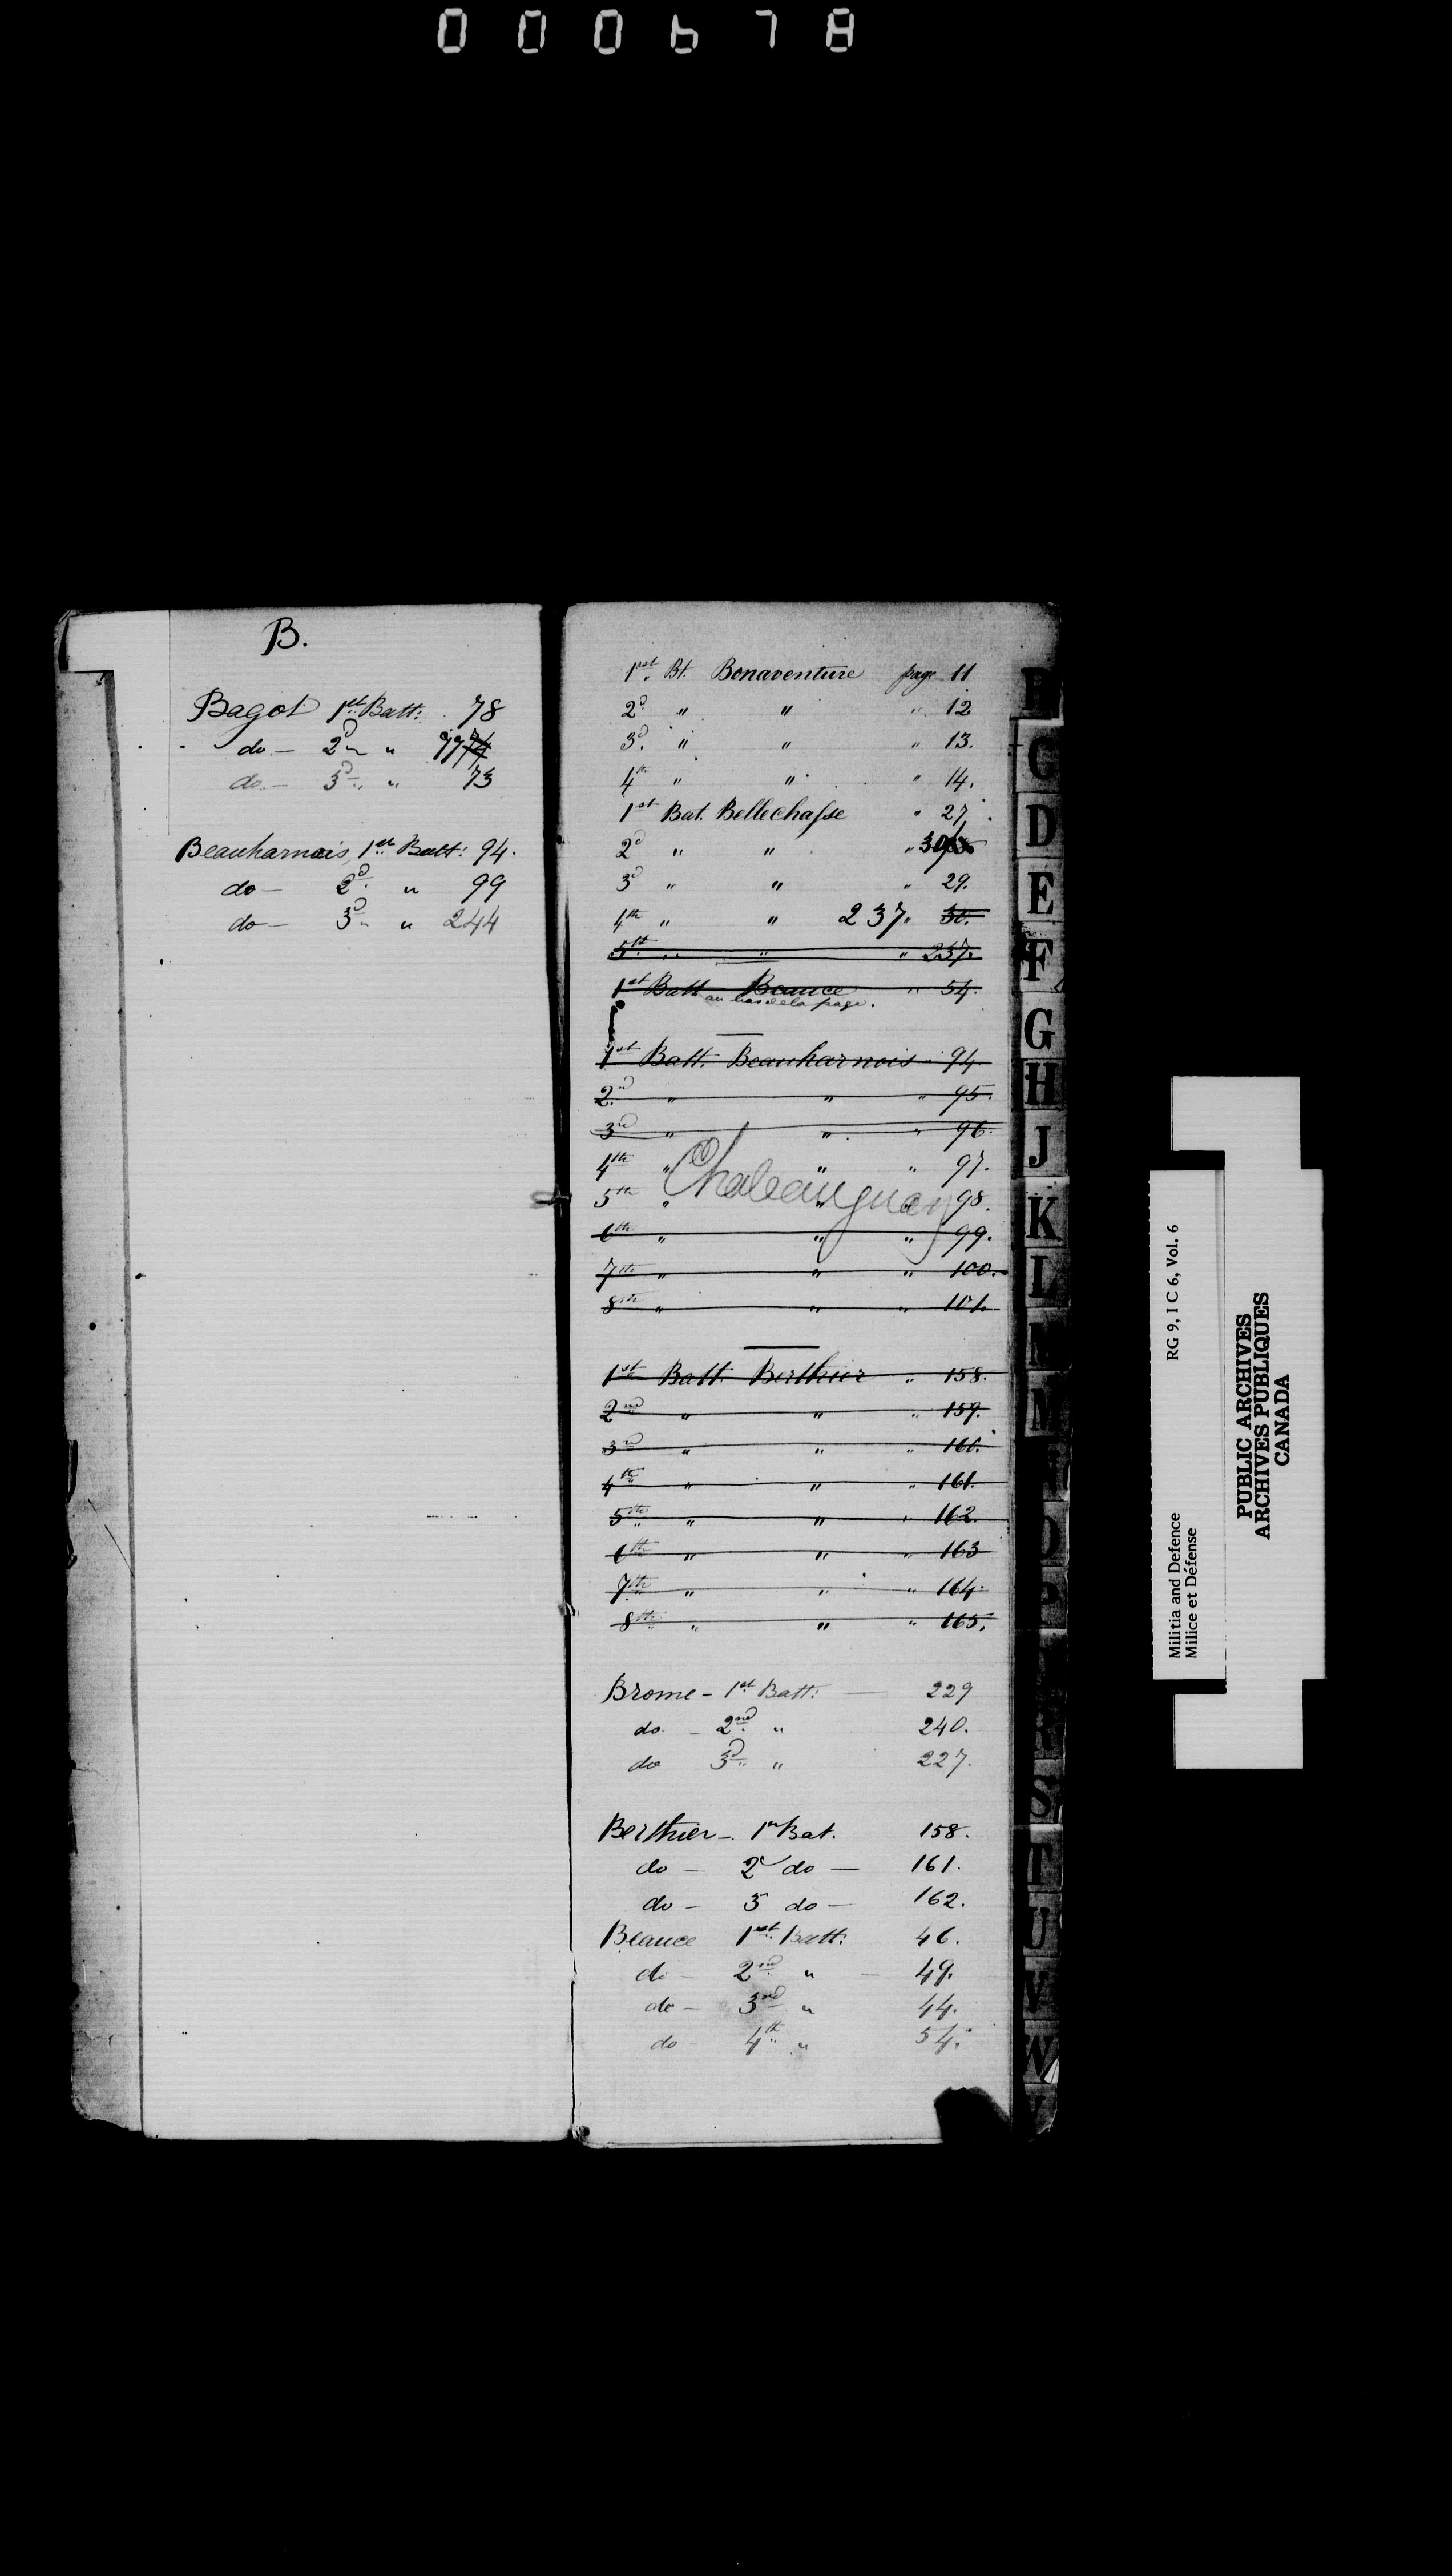 000678
B.
Bagot 1st Batt: 78
do — 2d " 77 74
do — 3d " 73
Beauharnois, 1st Batt: 94.
do — 2d " 99
do — 3d " 244
1st Bt. Bonaventure page 11
2d " " " 12
3d " " " 13.
4th " " " 14.
1st Bat. Bellechasse " 27
2d " " "
3d " " " 29.
4th " " 237 " 30.
5th " " " 237.
1st Batt Beauce " 54.
au bas de la page.
1st Batt. Beauharnois " 94.
2nd " " " 95.
3rd " " " 96.
4th " " " 97.
Chateauguay
5th " " " 98.
6th " " " 99.
7th " " " 100.
8th " " " 101.
1st Batt. Berthier " 158.
2nd " " " 159.
3rd " " " 160.
4th " " " 161.
5th " " " 162.
6th " " " 163
7th " " " 164.
8th " " " 165.
Brome – 1st Batt: — 229
do. – 2nd " 240.
do 3d " 227.
Berthier – 1r Bat. 158.
do — 2d do — 161.
do – 3 do — 162.
Beauce 1st Batt: 46.
do – 2nd " — 49.
do – 3rd " 44.
do 4th " 54.
C
D
E
F
G
H
J
K
L
M
S
T
V
W
Militia and Defence RG 9, I C 6, Vol. 6
Milice et Défense
PUBLIC ARCHIVES
ARCHIVES PUBLIQUES
CANADA